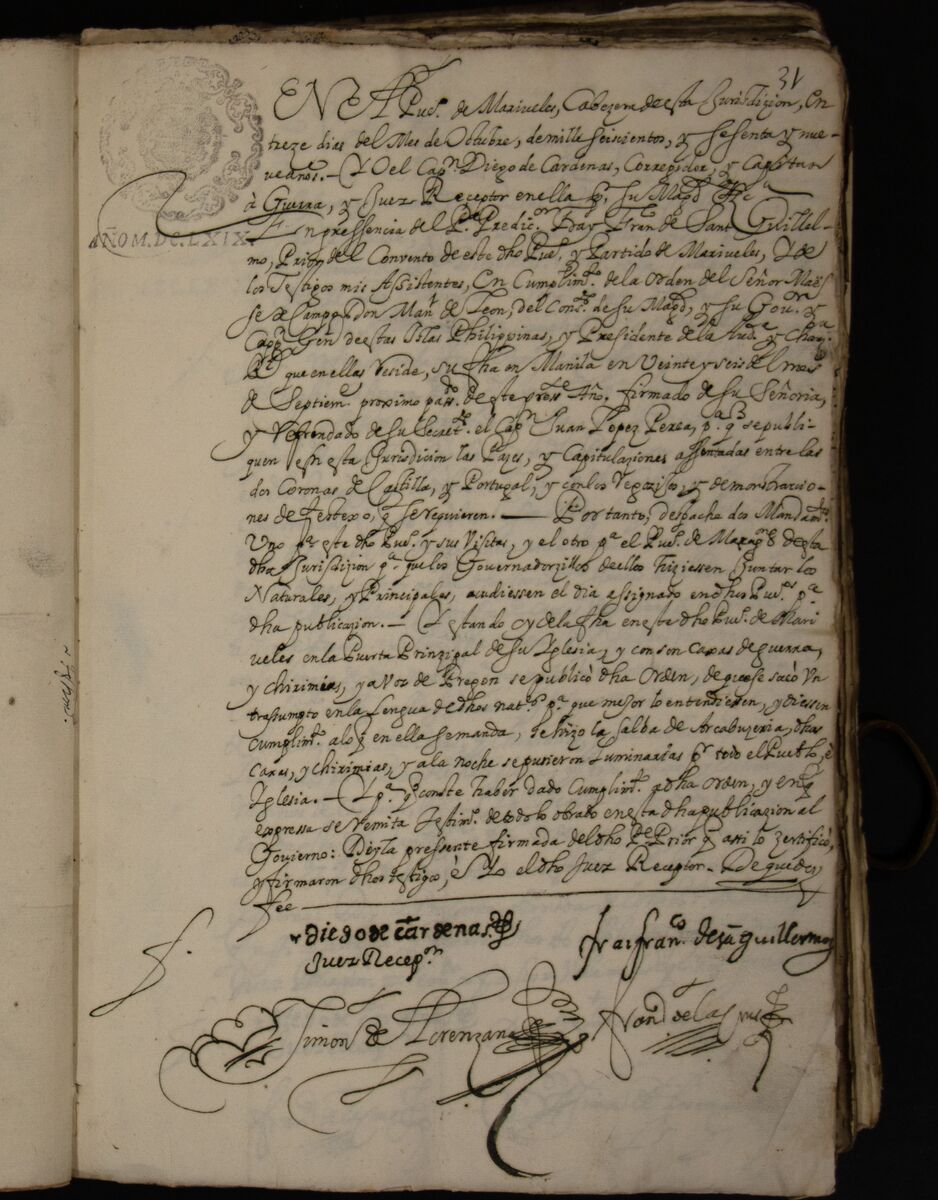 31
EN el Pueo. de Mariueles, Cabezera de esta Jurisdizion, En
treze dias del Mes de Octubre, de mill e seiscientos, y sesenta y nue-
ue años. – Yo el Cappn. Diego de Cardenas, Corregidor, y Capitan
à Guerra, y Juez Receptor en ella por su Magd. &c.
En pressencia del Pe. Predicor. fray Franco. de San Guillel-
AÑO M.DC.LXIX.
mo, Prior del Convento de este dho Pueo. y Partido de Mariueles, Y de
los Testigos mis Assistentes, En Cumplimto. de la orden del Señor Maes
se de Campo Don Manl. de Leon, del Conso. de su Magd. y su Gour. y
Cappn. Genl. de estas Islas Philippinas, y Presidente de la Auda. y Chanza.
Rl. que en ellas Reside, su fha en Manila en Veinte y seis del mes
de Septiemre. proximo passdo. de este presste. Año. firmado de su Señoria,
y Refrendado de su Secreto. el Cappn. Juan Lopez Perea, pa. q se publi-
quen en esta Jurisdicion las Pazes, y Capitulaziones assentadas entre las
dos Coronas de Castilla, y Portugal, y con los Regozijos, y demonstracio-
nes de festexo, q se requieren. — Por tanto, despache dos Mandamtos.
Uno pa. este dho Pueo. y sus Visitas, y el otro pa. el Pueo. de de esta
dha Jurisdizion pa. que los Governadorzillos de ellos hiziessen Juntar los
Naturales, y Principales, acudiessen el dia assignado en dhos Pueos. pa.
dha publicazion. – Y estando oy dela fha en este dho Pueo. de Mari
ueles en la Puerta Prinzipal de su Iglesia, y con son Caxas de guerra,
y chirimias, y a Voz de Pregon se publicò dha orden, de que se sacò Un
trassumpto en la Lengua de dhos natos. pa. que mejor lo entendiessen, y diessen
Cumplimto. alo q en ella se manda, se hizo la salba de Arcabuzeria, dhas
Caxas, y chirimias, y a la noche se pusieron Luminarias pr. todo el Pueblo, è
Iglesia. – Y pa. q conste haber dado Cumplimto. a dha orden, y en q
expressa se Remita Testimo. de todo lo obrado en esta dha publicazion al
Govierno: Di la pressente firmada del dho Pe. Prior q assi lo Zertificò,
y firmaron dhos testigos, è Yo el dho Juez Receptor. De que doy
fee
Diego de Cardenas
Juez Recepor.
frai franco. de sn guillermo
Simon de Lorenzana